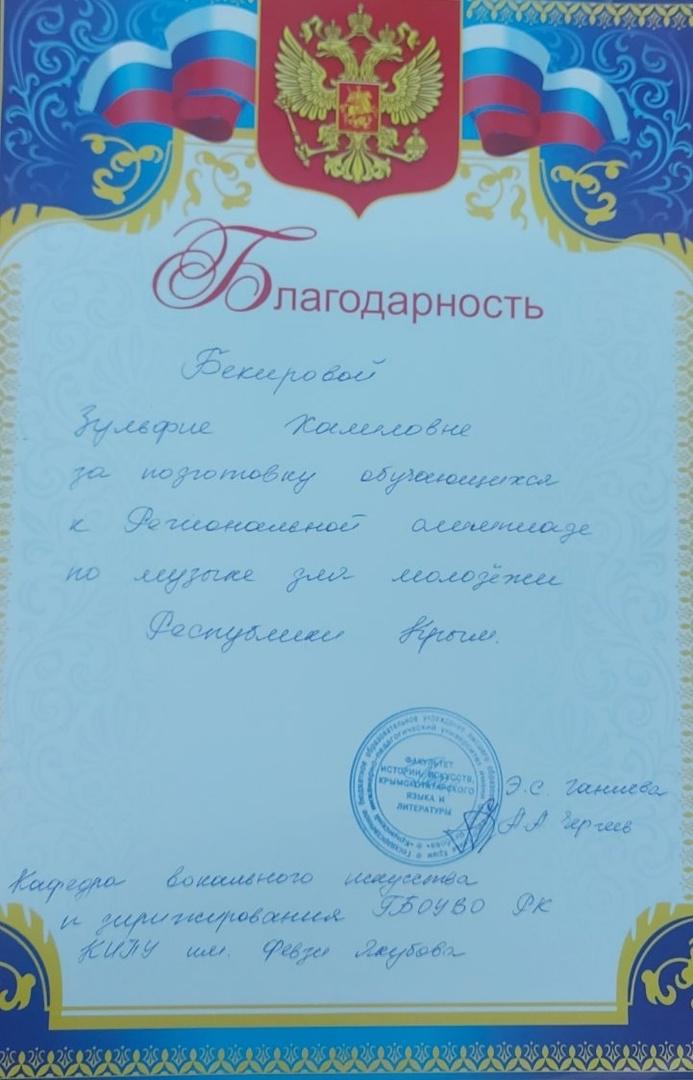 Благодарность
Бекировой
Зульфие Халиловне
за подготовку обучающихся
к Региональной олимпиаде
по музыке для молодёжи
Республики Крым.
ФАКУЛЬТЕТ
ИСТОРИИ, ИСКУССТВ,
КРЫМСКОТАТАРСКОГО
ЯЗЫКА И
ЛИТЕРАТУРЫ
Э.С. Ганиева
А.А. Чергеев
Кафедра вокального искусства
и дирижирования ГБОУВО РК
КИПУ им. Февзи Якубова